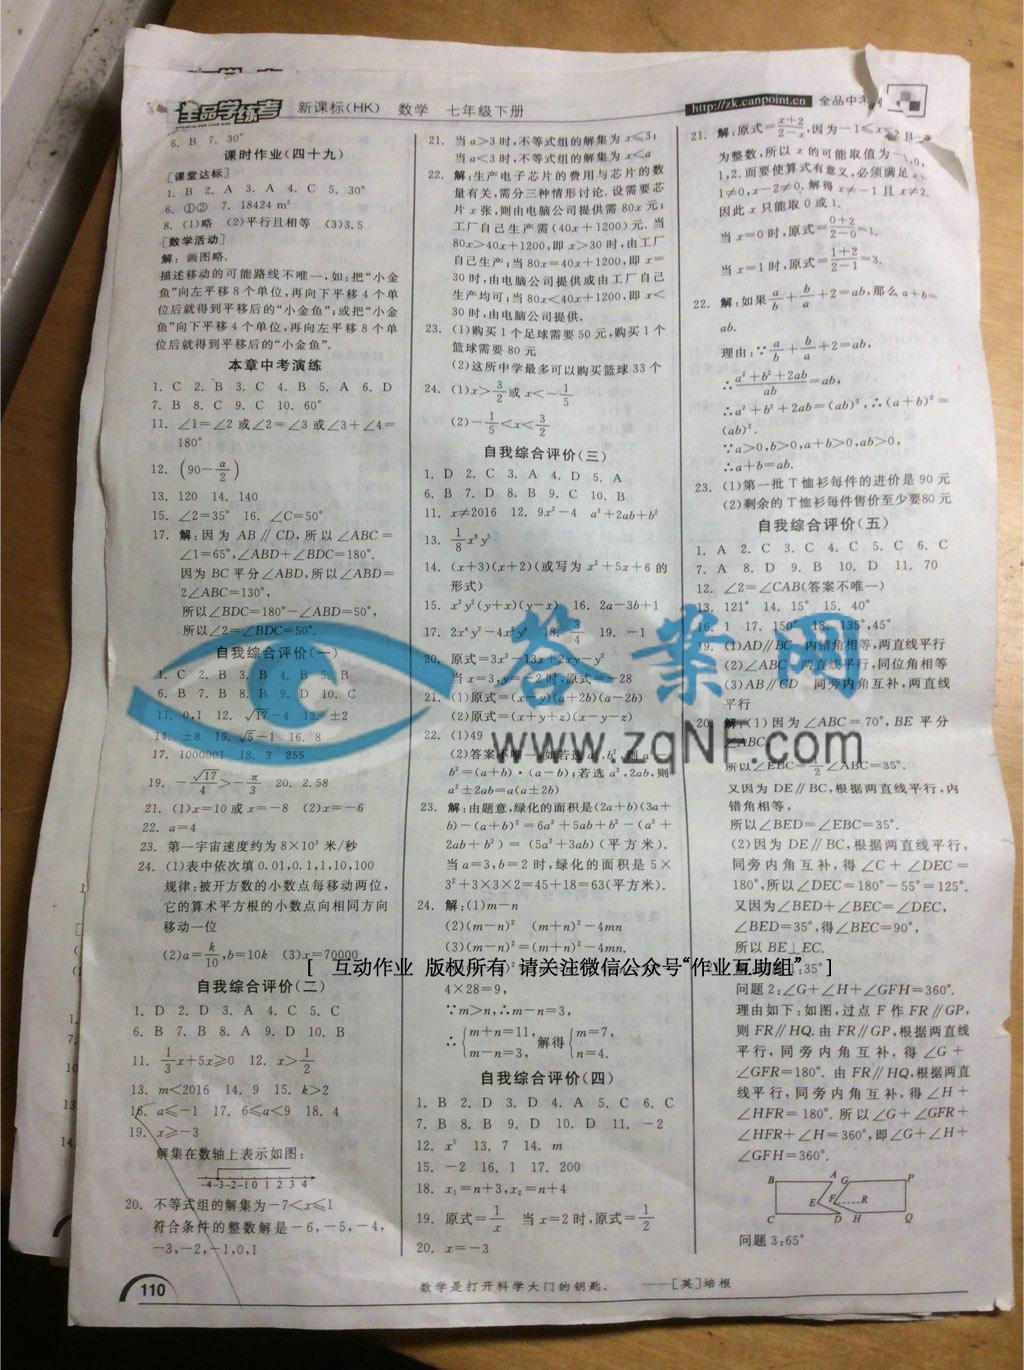 全品学练考 新课标(HK) 数学 七年级下册
http://zk.canpoint.cn 全品中考网
6. B 7. 30°
课时作业(四十九)
[课堂达标]
1. B 2. A 3. A 4. C 5. 30°
6. ①② 7. 18424 m²
8. (1)略 (2)平行且相等 (3)3.5
[数学活动]
解: 画图略.
描述移动的可能路线不唯一,如:把“小金
鱼”向左平移8个单位,再向下平移4个单
位后就得到平移后的“小金鱼”;或把“小金
鱼”向下平移4个单位,再向左平移8个单
位后就得到平移后的“小金鱼”.
本章中考演练
1. C 2. B 3. C 4. B 5. A 6. D
7. B 8. C 9. C 10. 60°
11. ∠1=∠2或∠2=∠3或∠3+∠4=
180°
12. (90-a/2)
13. 120 14. 140
15. ∠2=35° 16. ∠C=50°
17. 解:因为AB∥CD,所以∠ABC=
∠1=65°,∠ABD+∠BDC=180°.
因为BC平分∠ABD,所以∠ABD=
2∠ABC=130°,
所以∠BDC=180°-∠ABD=50°,
所以∠2=∠BDC=50°.
自我综合评价(一)
1. C 2. B 3. B 4. B 5. B
6. B 7. B 8. B 9. D 10. C
11. 0,1 12. √17-4 13. ±2
14. ±8 15. √5-1 16. 8
17. 1000001 18. 3 255
19. -√17/4>-π/3 20. 2.58
21. (1)x=10或x=-8 (2)x=-6
22. a=4
23. 第一宇宙速度约为8×10³米/秒
24. (1)表中依次填0.01,0.1,1,10,100
规律:被开方数的小数点每移动两位,
它的算术平方根的小数点向相同方向
移动一位
(2)a=k/10,b=10k (3)x=70000
自我综合评价(二)
1. D 2. D 3. A 4. C 5. C
6. B 7. B 8. A 9. D 10. B
11. 1/3x+5x≥0 12. x>1/2
13. m<2016 14. 9 15. k>2
16. a≤-1 17. 6≤a<9 18. 4
19. x≥-3
解集在数轴上表示如图:
-4-3-2-1 0 1 2 3 4
20. 不等式组的解集为-7<x≤1
符合条件的整数解是-6,-5,-4,
-3,-2,-1,0,1
21. 当a>3时,不等式组的解集为x≤3;
当a<3时,不等式组的解集为x≤a
22. 解:生产电子芯片的费用与芯片的数
量有关,需分三种情形讨论.设需要芯
片x张,则由电脑公司提供需80x元;
工厂自己生产需(40x+1200)元.当
80x>40x+1200,即x>30时,由工厂
自己生产;当80x=40x+1200,即x=
30时,由电脑公司提供或由工厂自己
生产均可;当80x<40x+1200,即x<
30时,由电脑公司提供.
23. (1)购买1个足球需要50元,购买1个
篮球需要80元
(2)这所中学最多可以购买篮球33个
24. (1)x>3/2或x<-1/5
(2)-1/5<x<3/2
自我综合评价(三)
1. D 2. C 3. A 4. D 5. A
6. B 7. D 8. B 9. C 10. B
11. x≠2016 12. 9x²-4 a²+2ab+b²
13. 1/8x⁶y⁵
14. (x+3)(x+2)(或写为x²+5x+6的
形式)
15. x²y²(y+x)(y-x) 16. 2a-3b+1
17. 2x⁴y²-4x²y⁴ 18. 3/4 19. -1
20. 原式=3x²-13x+2xy-y²
当x=3,y=-2时,原式=-28
21. (1)原式=(x-y)(a+2b)(a-2b)
(2)原式=(x+y+z)(x-y-z)
22. (1)49
(2)答案不唯一,如若选a²,b²,则a²-
b²=(a+b)·(a-b);若选a²,2ab,则
a²±2ab=a(a±2b)
23. 解:由题意,绿化的面积是(2a+b)(3a+
b)-(a+b)²=6a²+5ab+b²-(a²+
2ab+b²)=(5a²+3ab)(平方米).
当a=3,b=2时,绿化的面积是5×
3²+3×3×2=45+18=63(平方米).
24. 解:(1)m-n
(2)(m-n)² (m+n)²-4mn
(3)(m-n)²=(m+n)²-4mn.
4×28=9,
∵m>n,∴m-n=3,
∴{m+n=11, m-n=3, 解得{m=7, n=4.
自我综合评价(四)
1. B 2. D 3. D 4. A 5. C 6. C
7. B 8. B 9. D 10. D 11. -2
12. x⁵ 13. 7 14. m
15. -2 16. 1 17. 200
18. x₁=n+3,x₂=n+4
19. 原式=1/x 当x=2时,原式=1/2
20. x=-3
21. 解:原式=x+2/2-x,因为-1≤x≤2且
为整数,所以x的可能取值为-1,0,
1,2.而要使算式有意义,必须满足x+
1≠0,x-2≠0.解得x≠-1且x≠2.
因此x只能取0或1.
当x=0时,原式=0+2/2-0=1.
当x=1时,原式=1+2/2-1=3.
22. 解:如果a/b+b/a+2=ab,那么a+b=
ab.
理由:∵a/b+b/a+2=ab,
∴a²+b²+2ab/ab=ab,
∴a²+b²+2ab=(ab)²,∴(a+b)²=
(ab)².
∵a>0,b>0,a+b>0,ab>0,
∴a+b=ab.
23. (1)第一批T恤衫每件的进价是90元
(2)剩余的T恤衫每件售价至少要80元
自我综合评价(五)
1. A 2. C 3. C 4. C 5. C 6. C
7. A 8. D 9. B 10. D 11. 70
12. ∠2=∠CAB(答案不唯一)
13. 121° 14. 15° 15. 40°
16. 1 17. 150° 18. 135°,45°
19. (1)AD∥BC 内错角相等,两直线平行
(2)∠ABC 两直线平行,同位角相等
(3)AB∥CD 同旁内角互补,两直线
平行
20. 解:(1)因为∠ABC=70°,BE平分
∠ABC,
所以∠EBC=1/2∠ABC=35°.
又因为DE∥BC,根据两直线平行,内
错角相等,
所以∠BED=∠EBC=35°.
(2)因为DE∥BC,根据两直线平行,
同旁内角互补,得∠C+∠DEC=
180°,所以∠DEC=180°-55°=125°.
又因为∠BED+∠BEC=∠DEC,
∠BED=35°,得∠BEC=90°,
所以BE⊥EC.
:35°
问题2:∠G+∠H+∠GFH=360°.
理由如下:如图,过点F作FR∥GP,
则FR∥HQ.由FR∥GP,根据两直线
平行,同旁内角互补,得∠G+
∠GFR=180°.由FR∥HQ,根据两直
线平行,同旁内角互补,得∠H+
∠HFR=180°.所以∠G+∠GFR+
∠HFR+∠H=360°,即∠G+∠H+
∠GFH=360°.
B A G P
E F R
C D H Q
问题3:65°
110
数学是打开科学大门的钥匙. ——[英]培根
答案网
www.zqNF.com
[ 互动作业 版权所有 请关注微信公众号“作业互助组” ]